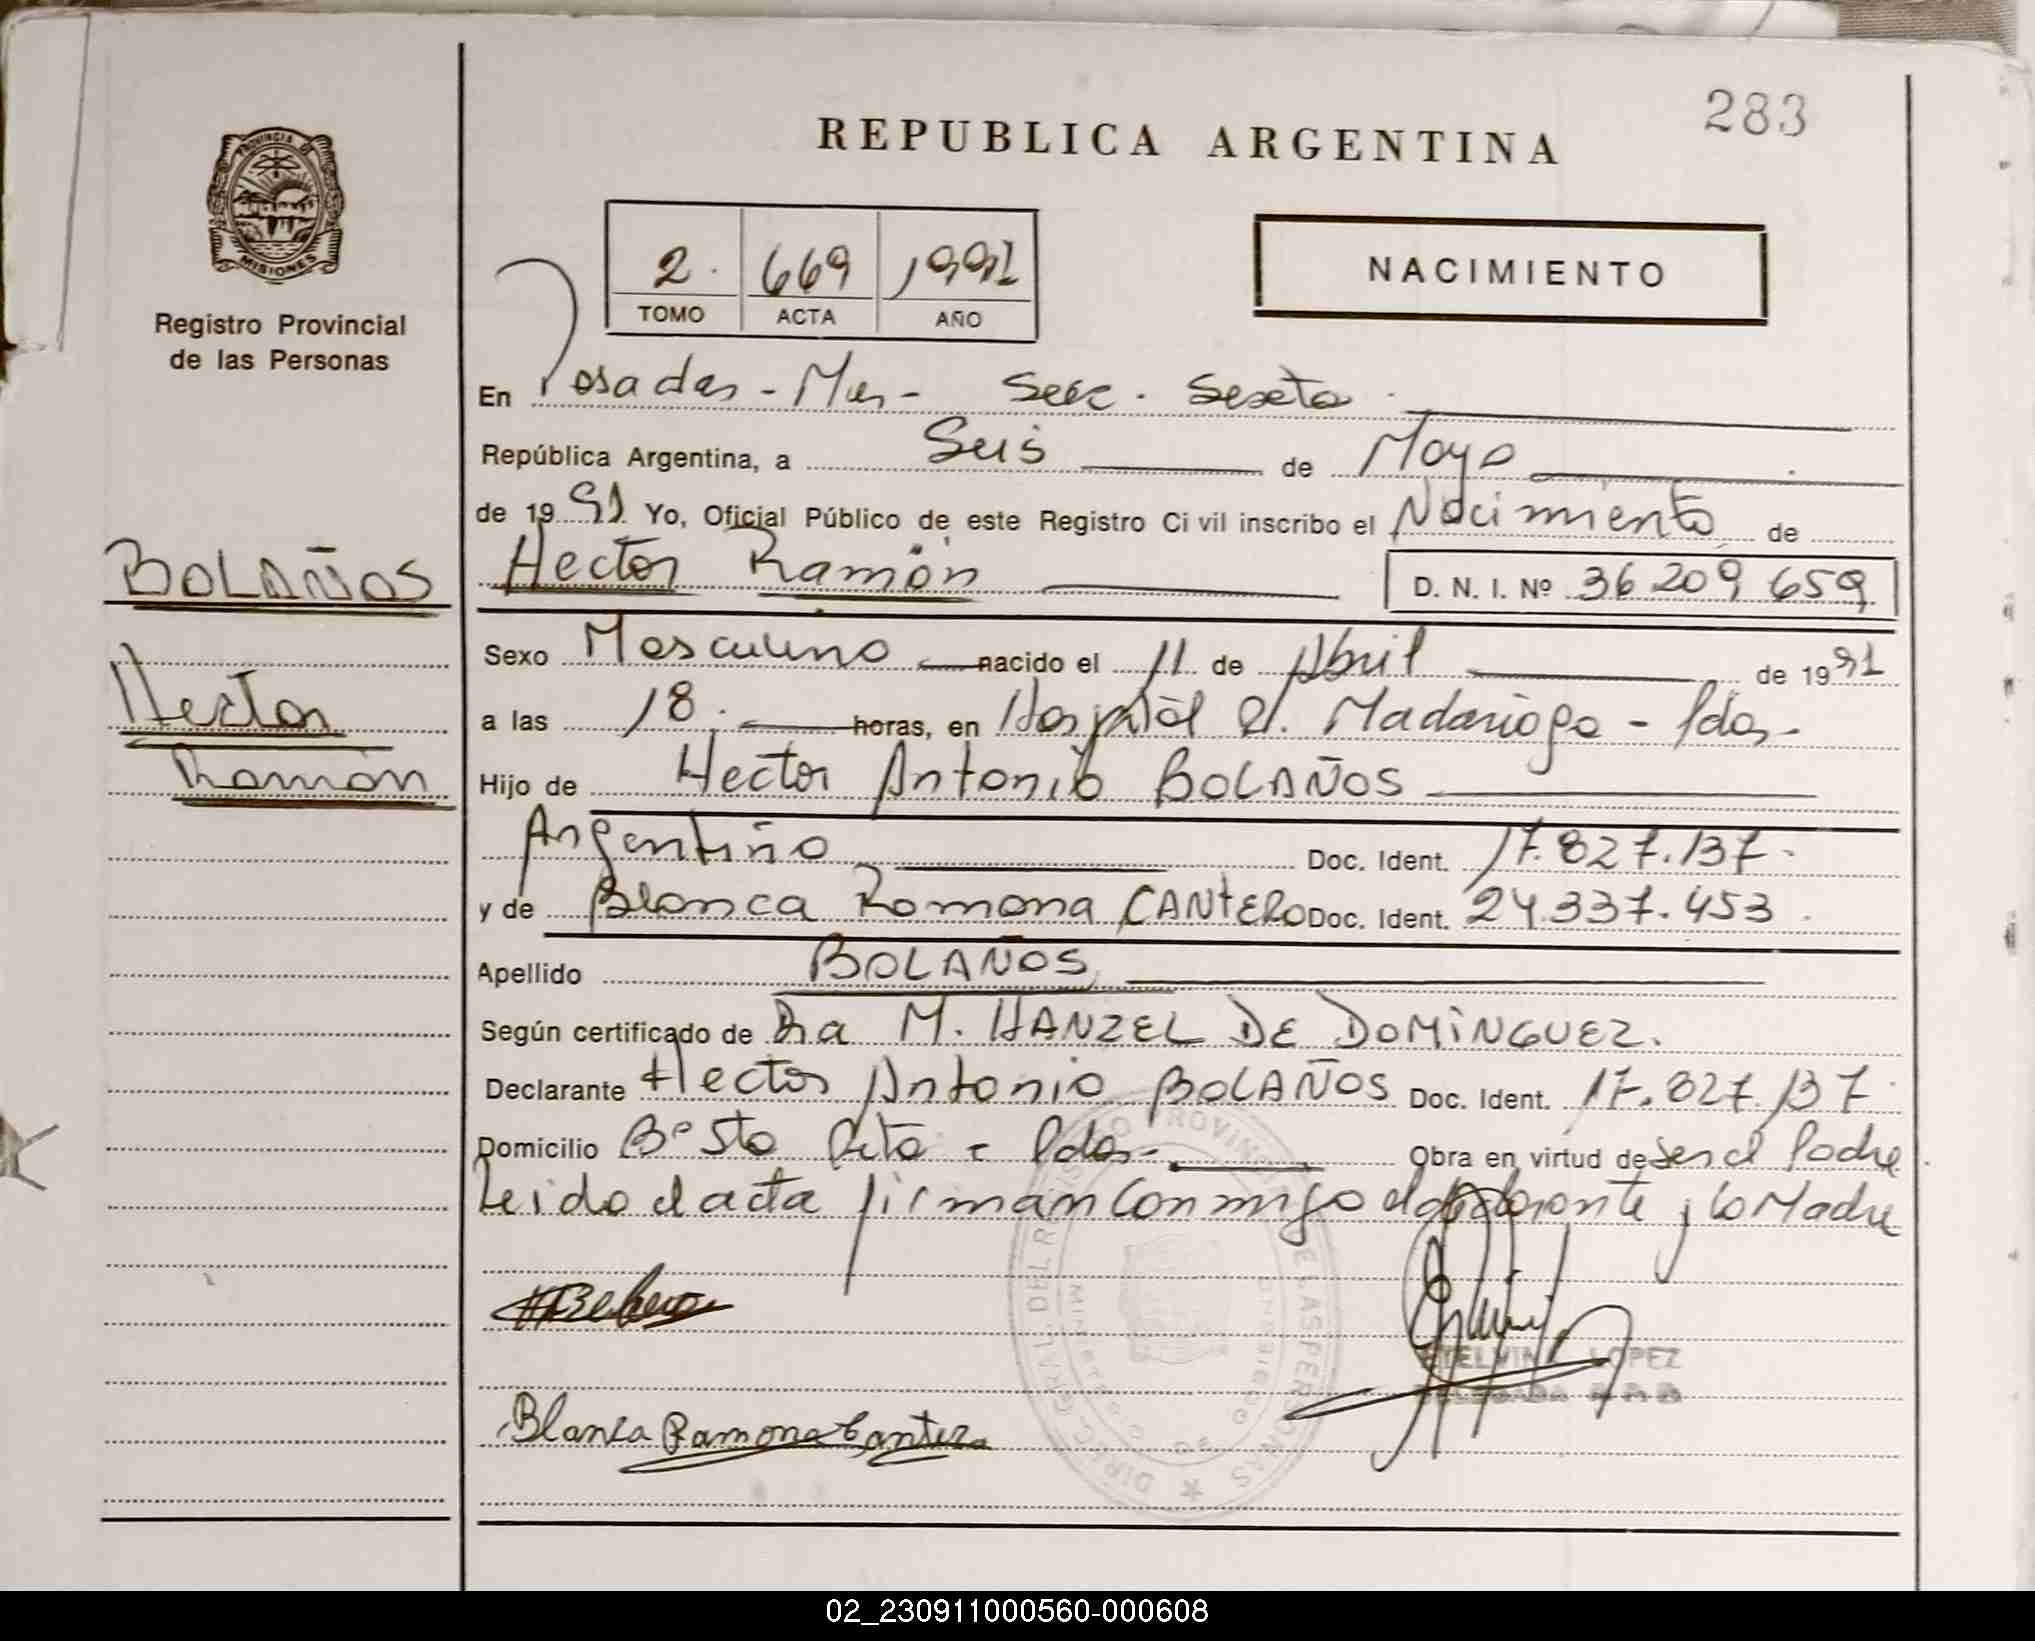 283
REPUBLICA ARGENTINA
PROVINCIA DE
MISIONES
Registro Provincial
de las Personas
2. 669 1991
TOMO ACTA AÑO
NACIMIENTO
En Posadas - Mnes - Secc. Sexta
República Argentina, a Seis de Mayo
de 1991 Yo, Oficial Público de este Registro Civil inscribo el Nacimiento de
Hector Ramón D. N. I. Nº 36 209 659
BOLAÑOS
Hector
Ramón
Sexo Masculino nacido el 11 de Abril de 1991
a las 18. horas, en Hospital R. Madariaga - Pdas-
Hijo de Hector Antonio BOLAÑOS
Argentino Doc. Ident. 17.827.137.
y de Blanca Ramona CANTERO Doc. Ident. 24.337.453.
Apellido BOLAÑOS
Según certificado de Dra M. HANZEL DE DOMINGUEZ.
Declarante Hector Antonio BOLAÑOS Doc. Ident. 17.827.137
Domicilio Bº Sta Rita - Pdas- Obra en virtud de ser el Padre
Leido el acta firman conmigo el declarante y la Madre
Blanca Ramona Cantero
ETELVINA LOPEZ
DIRECC. GRAL. DEL REGISTRO PROVINCIAL DE LAS PERSONAS
MINISTERIO DE
02_230911000560-000608